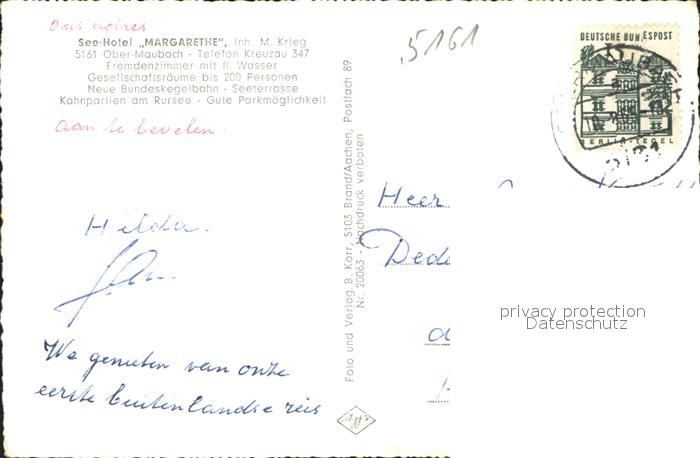 Ons adres
See-Hotel „MARGARETHE", Inh. M. Krieg
5161 Ober-Maubach - Telefon Kreuzau 347
Fremdenzimmer mit fl. Wasser
Gesellschaftsräume bis 200 Personen
Neue Bundeskegelbahn - Seeterrasse
Kahnpartien am Rursee - Gute Parkmöglichkeit
aan te bevelen.
Hilda.
We genieten van onze
eerste buitenlandse reis
Foto und Verlag B. Korr, 5103 Brand/Aachen, Postfach 89
Nr. 20063 - Nachdruck verboten
5161
DEUTSCHE BUNDESPOST
15
BERLIN-TEGEL
Heer
privacy protection
Datenschutz